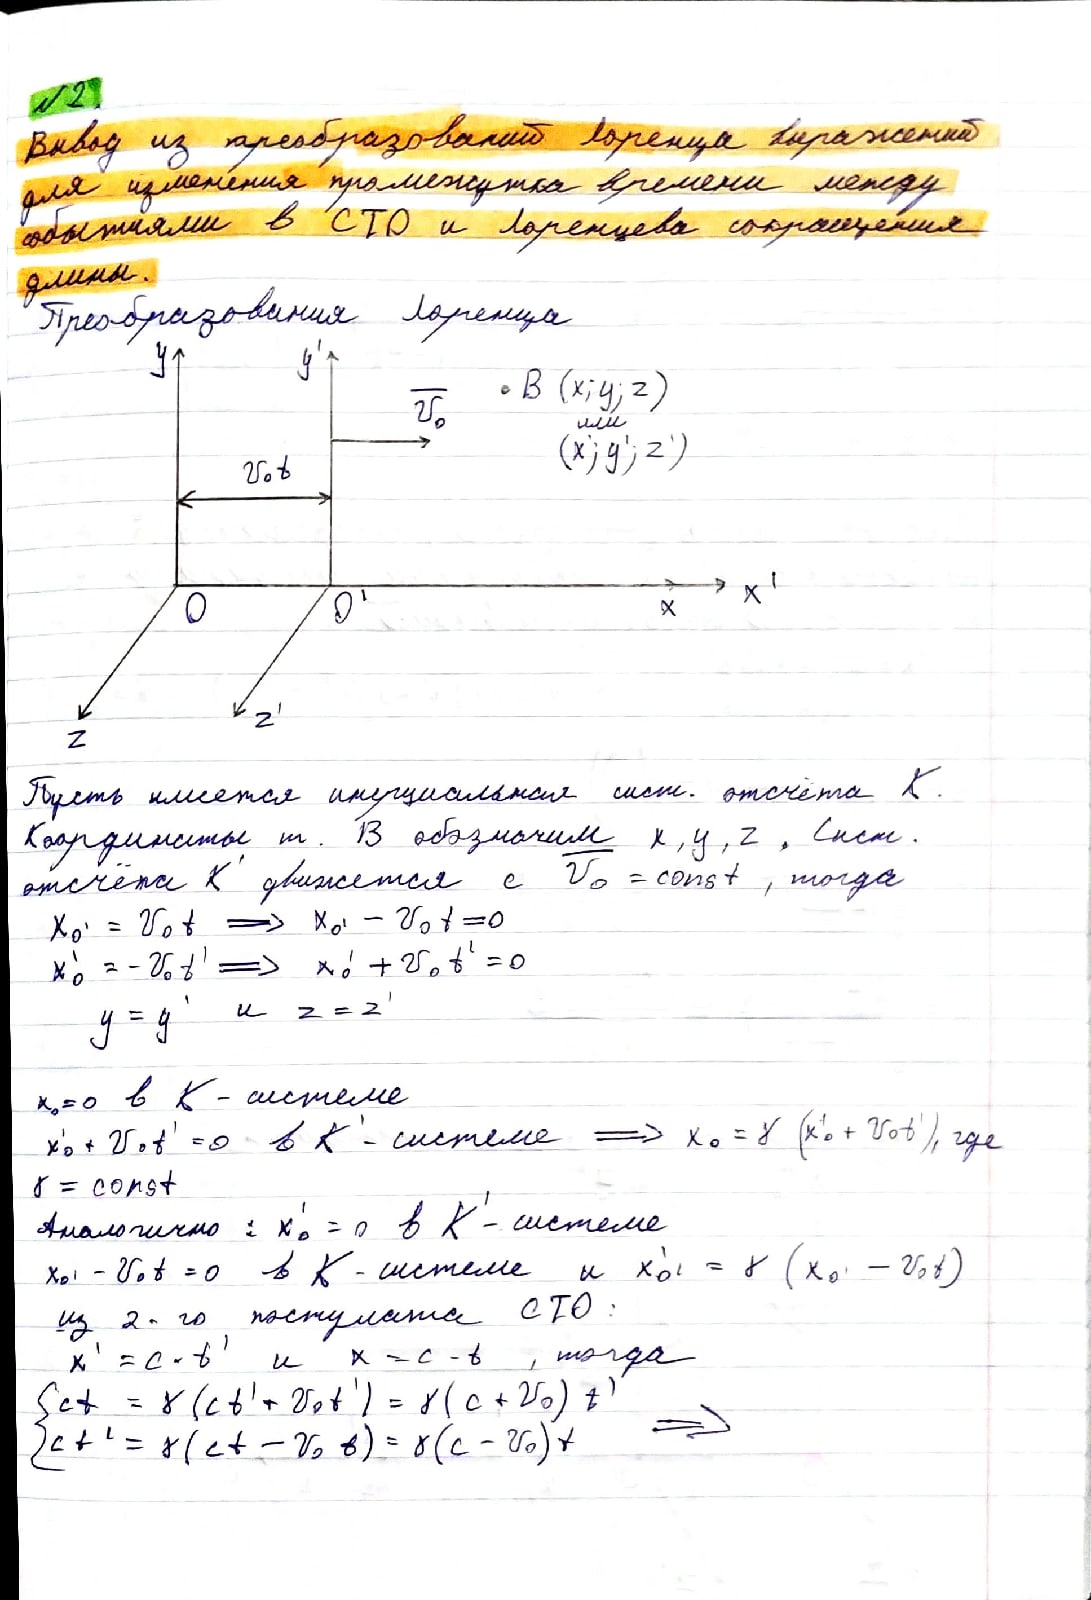 №2.
Вывод из преобразований Лоренца выражений
для изменения промежутка времени между
событиями в СТО и Лоренцева сокращения
длины.
Преобразования Лоренца
y y' v̅₀ · B (x; y; z)
или
(x'; y'; z')
v₀t
O O' x x'
z z'
Пусть имеется инерциальная сист. отсчёта K.
Координаты т. B обозначим x, y, z. Сист.
отсчёта K' движется с v̅₀ = const, тогда
x₀' = v₀t ⟹ x₀' - v₀t = 0
x'₀ = -v₀t' ⟹ x'₀ + v₀t' = 0
y = y' и z = z'
x₀ = 0 в K - системе
x'₀ + v₀t' = 0 в K' - системе ⟹ x₀ = γ (x'₀ + v₀t'), где
γ = const
Аналогично: x'₀ = 0 в K' - системе
x₀' - v₀t = 0 в K - системе и x'₀' = γ (x₀' - v₀t)
из 2-го постулата СТО:
x' = c·t' и x = c·t, тогда
{ct = γ(ct' + v₀t') = γ(c + v₀) t'
{ct' = γ(ct - v₀t) = γ(c - v₀)t ⟹